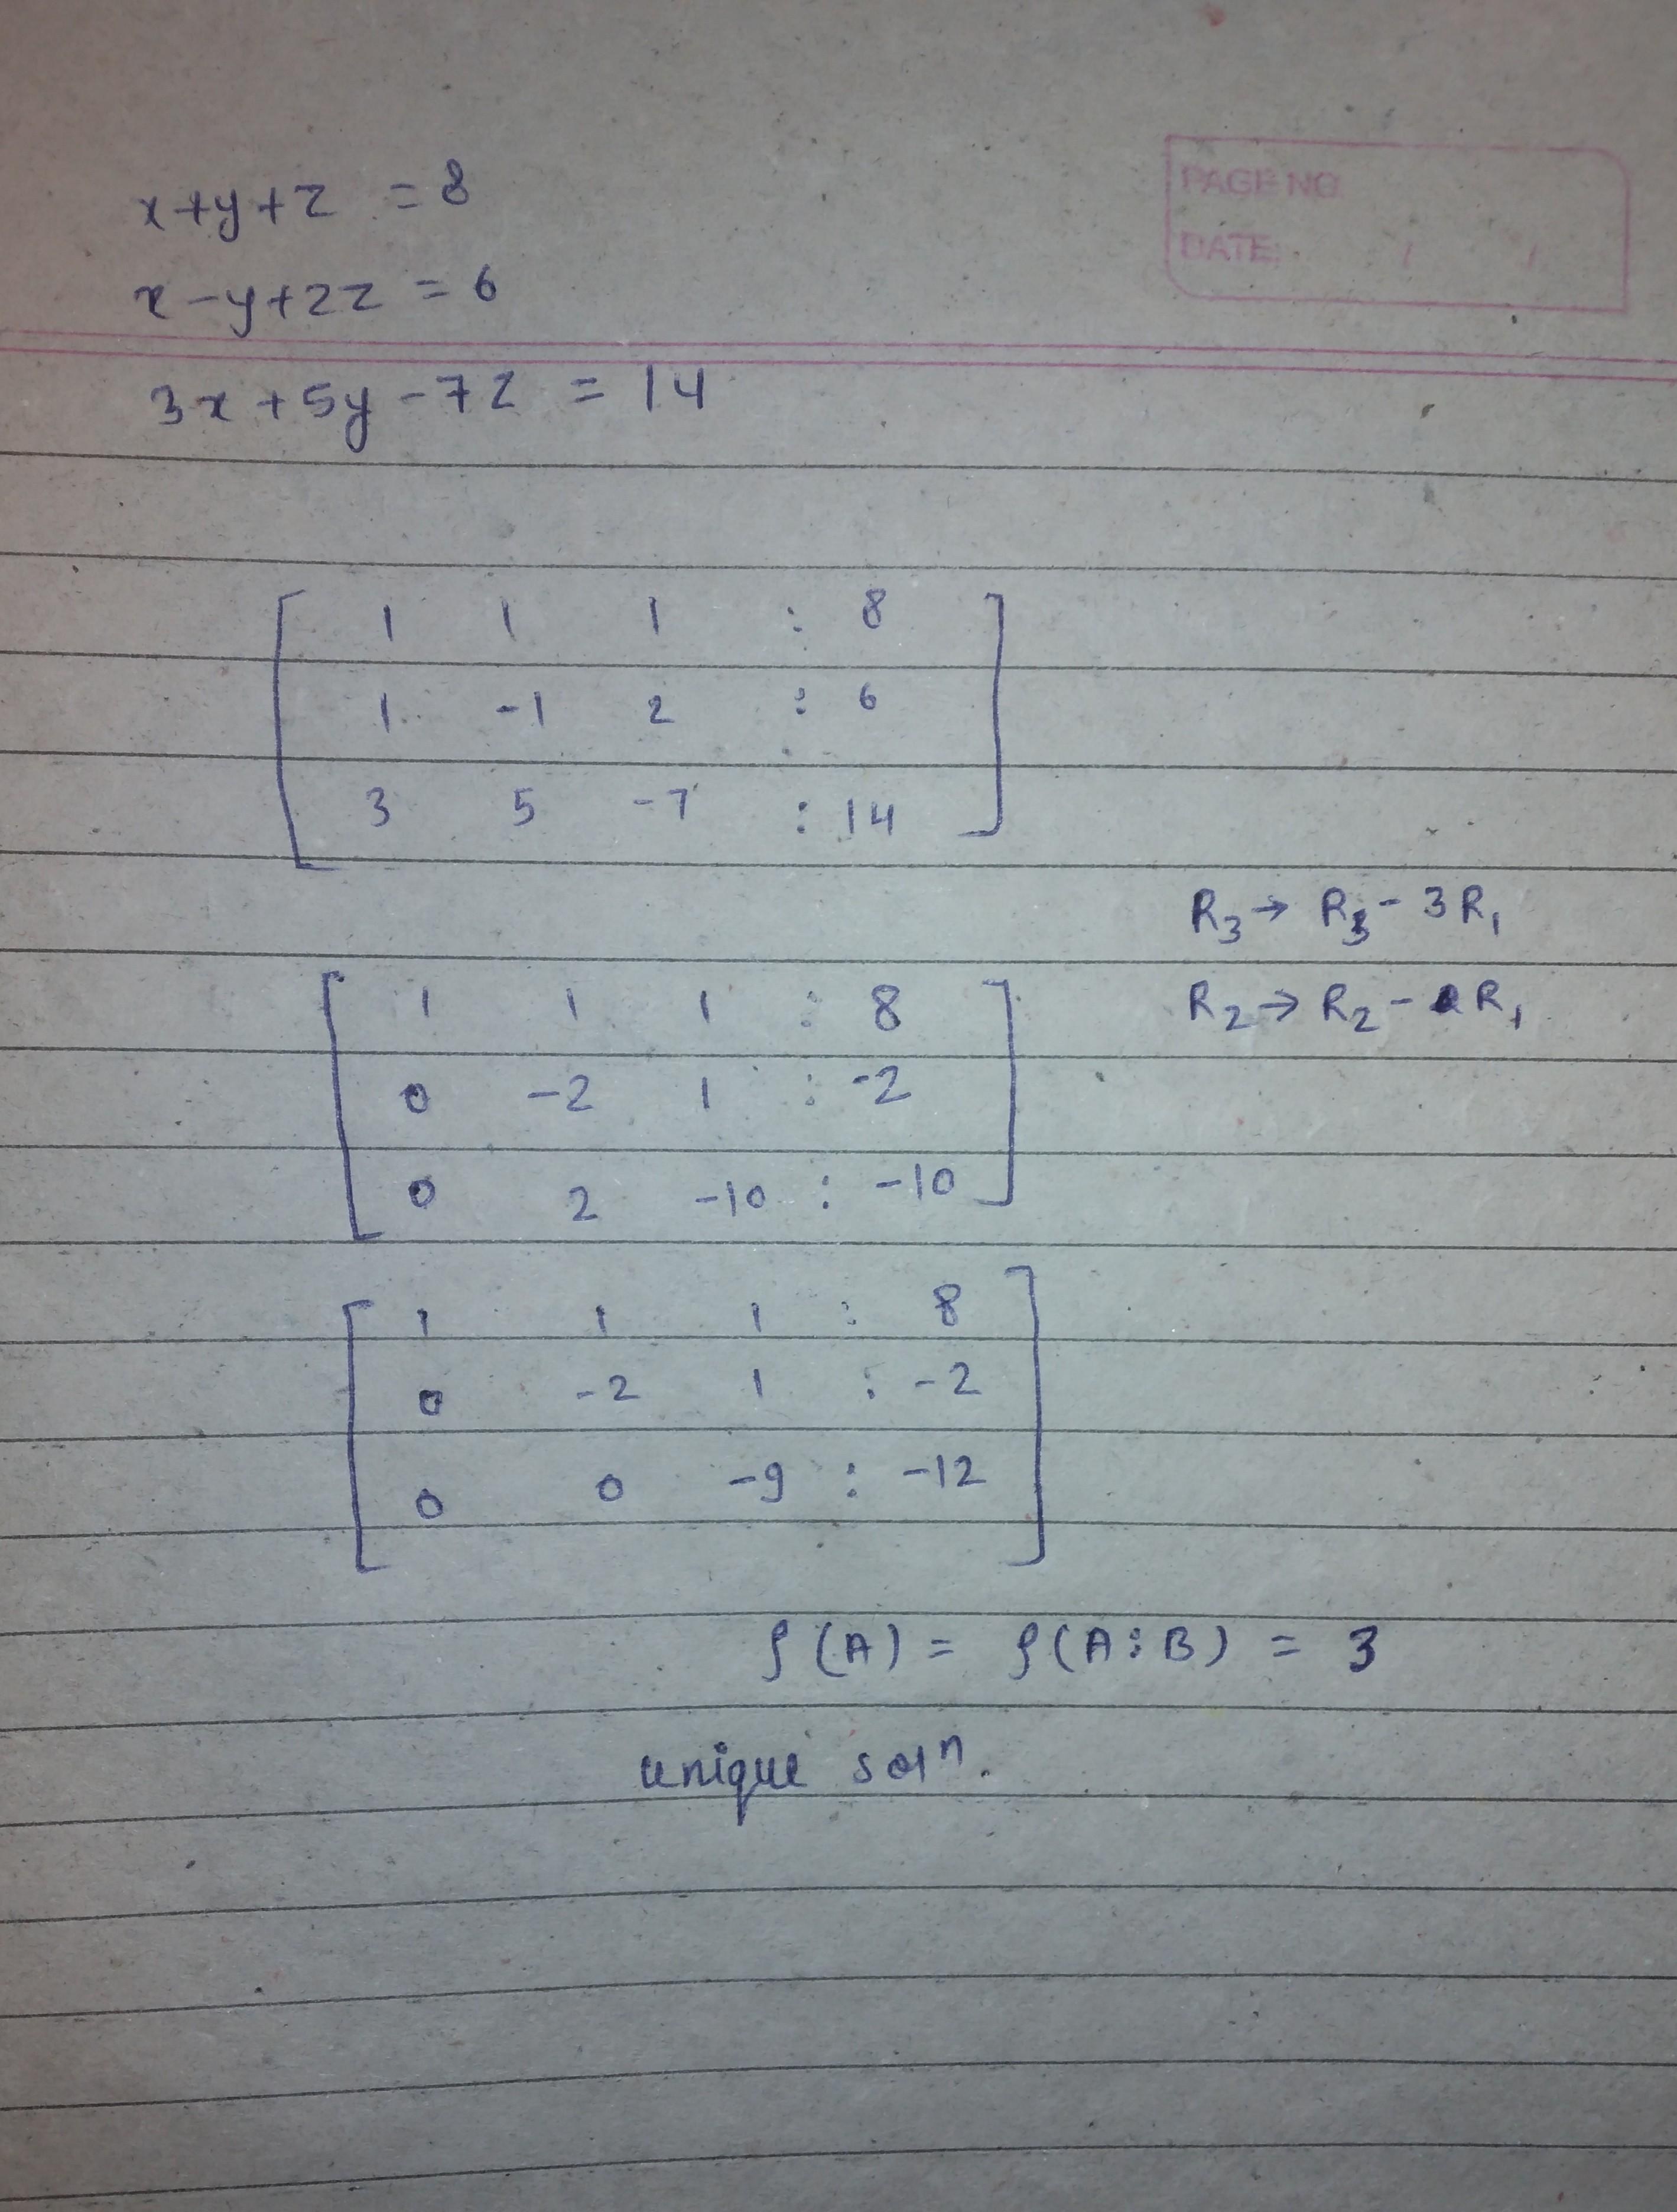 PAGE NO
DATE: / /
x+y+z = 8
x-y+2z = 6
3x+5y-7z = 14
1 1 1 : 8
1 -1 2 : 6
3 5 -7 : 14
R₃→ R₃- 3R₁
R₂→ R₂- R₁
1 1 1 : 8
0 -2 1 : -2
0 2 -10 : -10
1 1 1 : 8
0 -2 1 : -2
0 0 -9 : -12
ρ(A) = ρ(A:B) = 3
unique solⁿ.